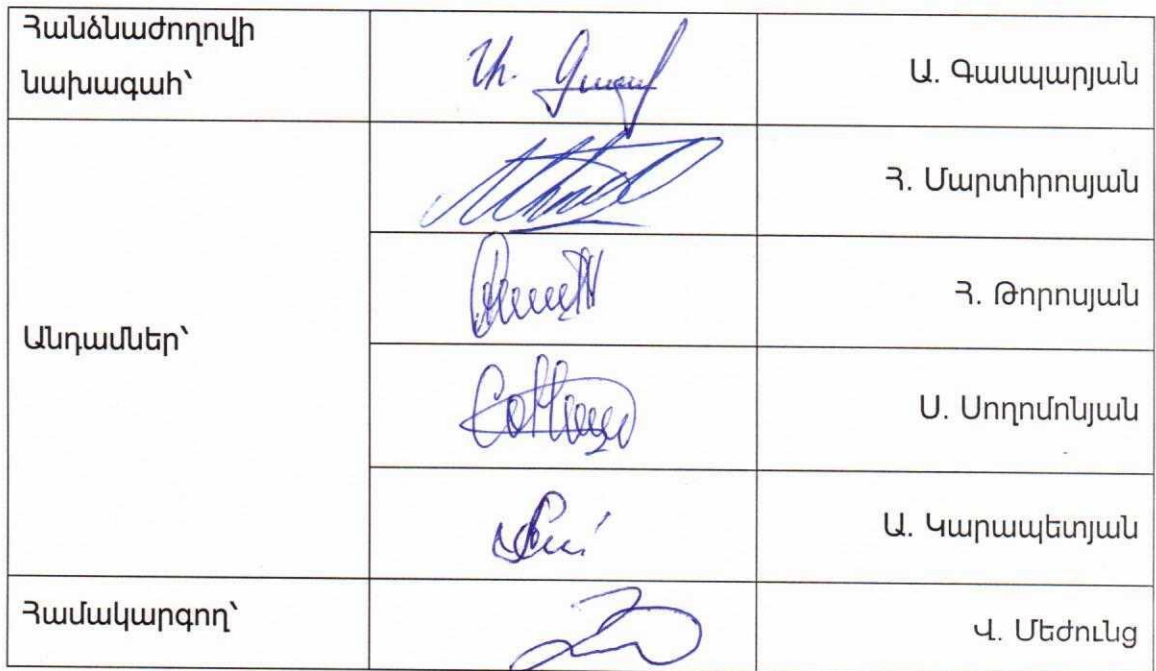 Հանձնաժողովի
նախագահ՝
Ա. Գասպարյան
Անդամներ՝
Հ. Մարտիրոսյան
Հ. Թորոսյան
Ս. Սողոմոնյան
Ա. Կարապետյան
Համակարգող՝
Վ. Մեժունց